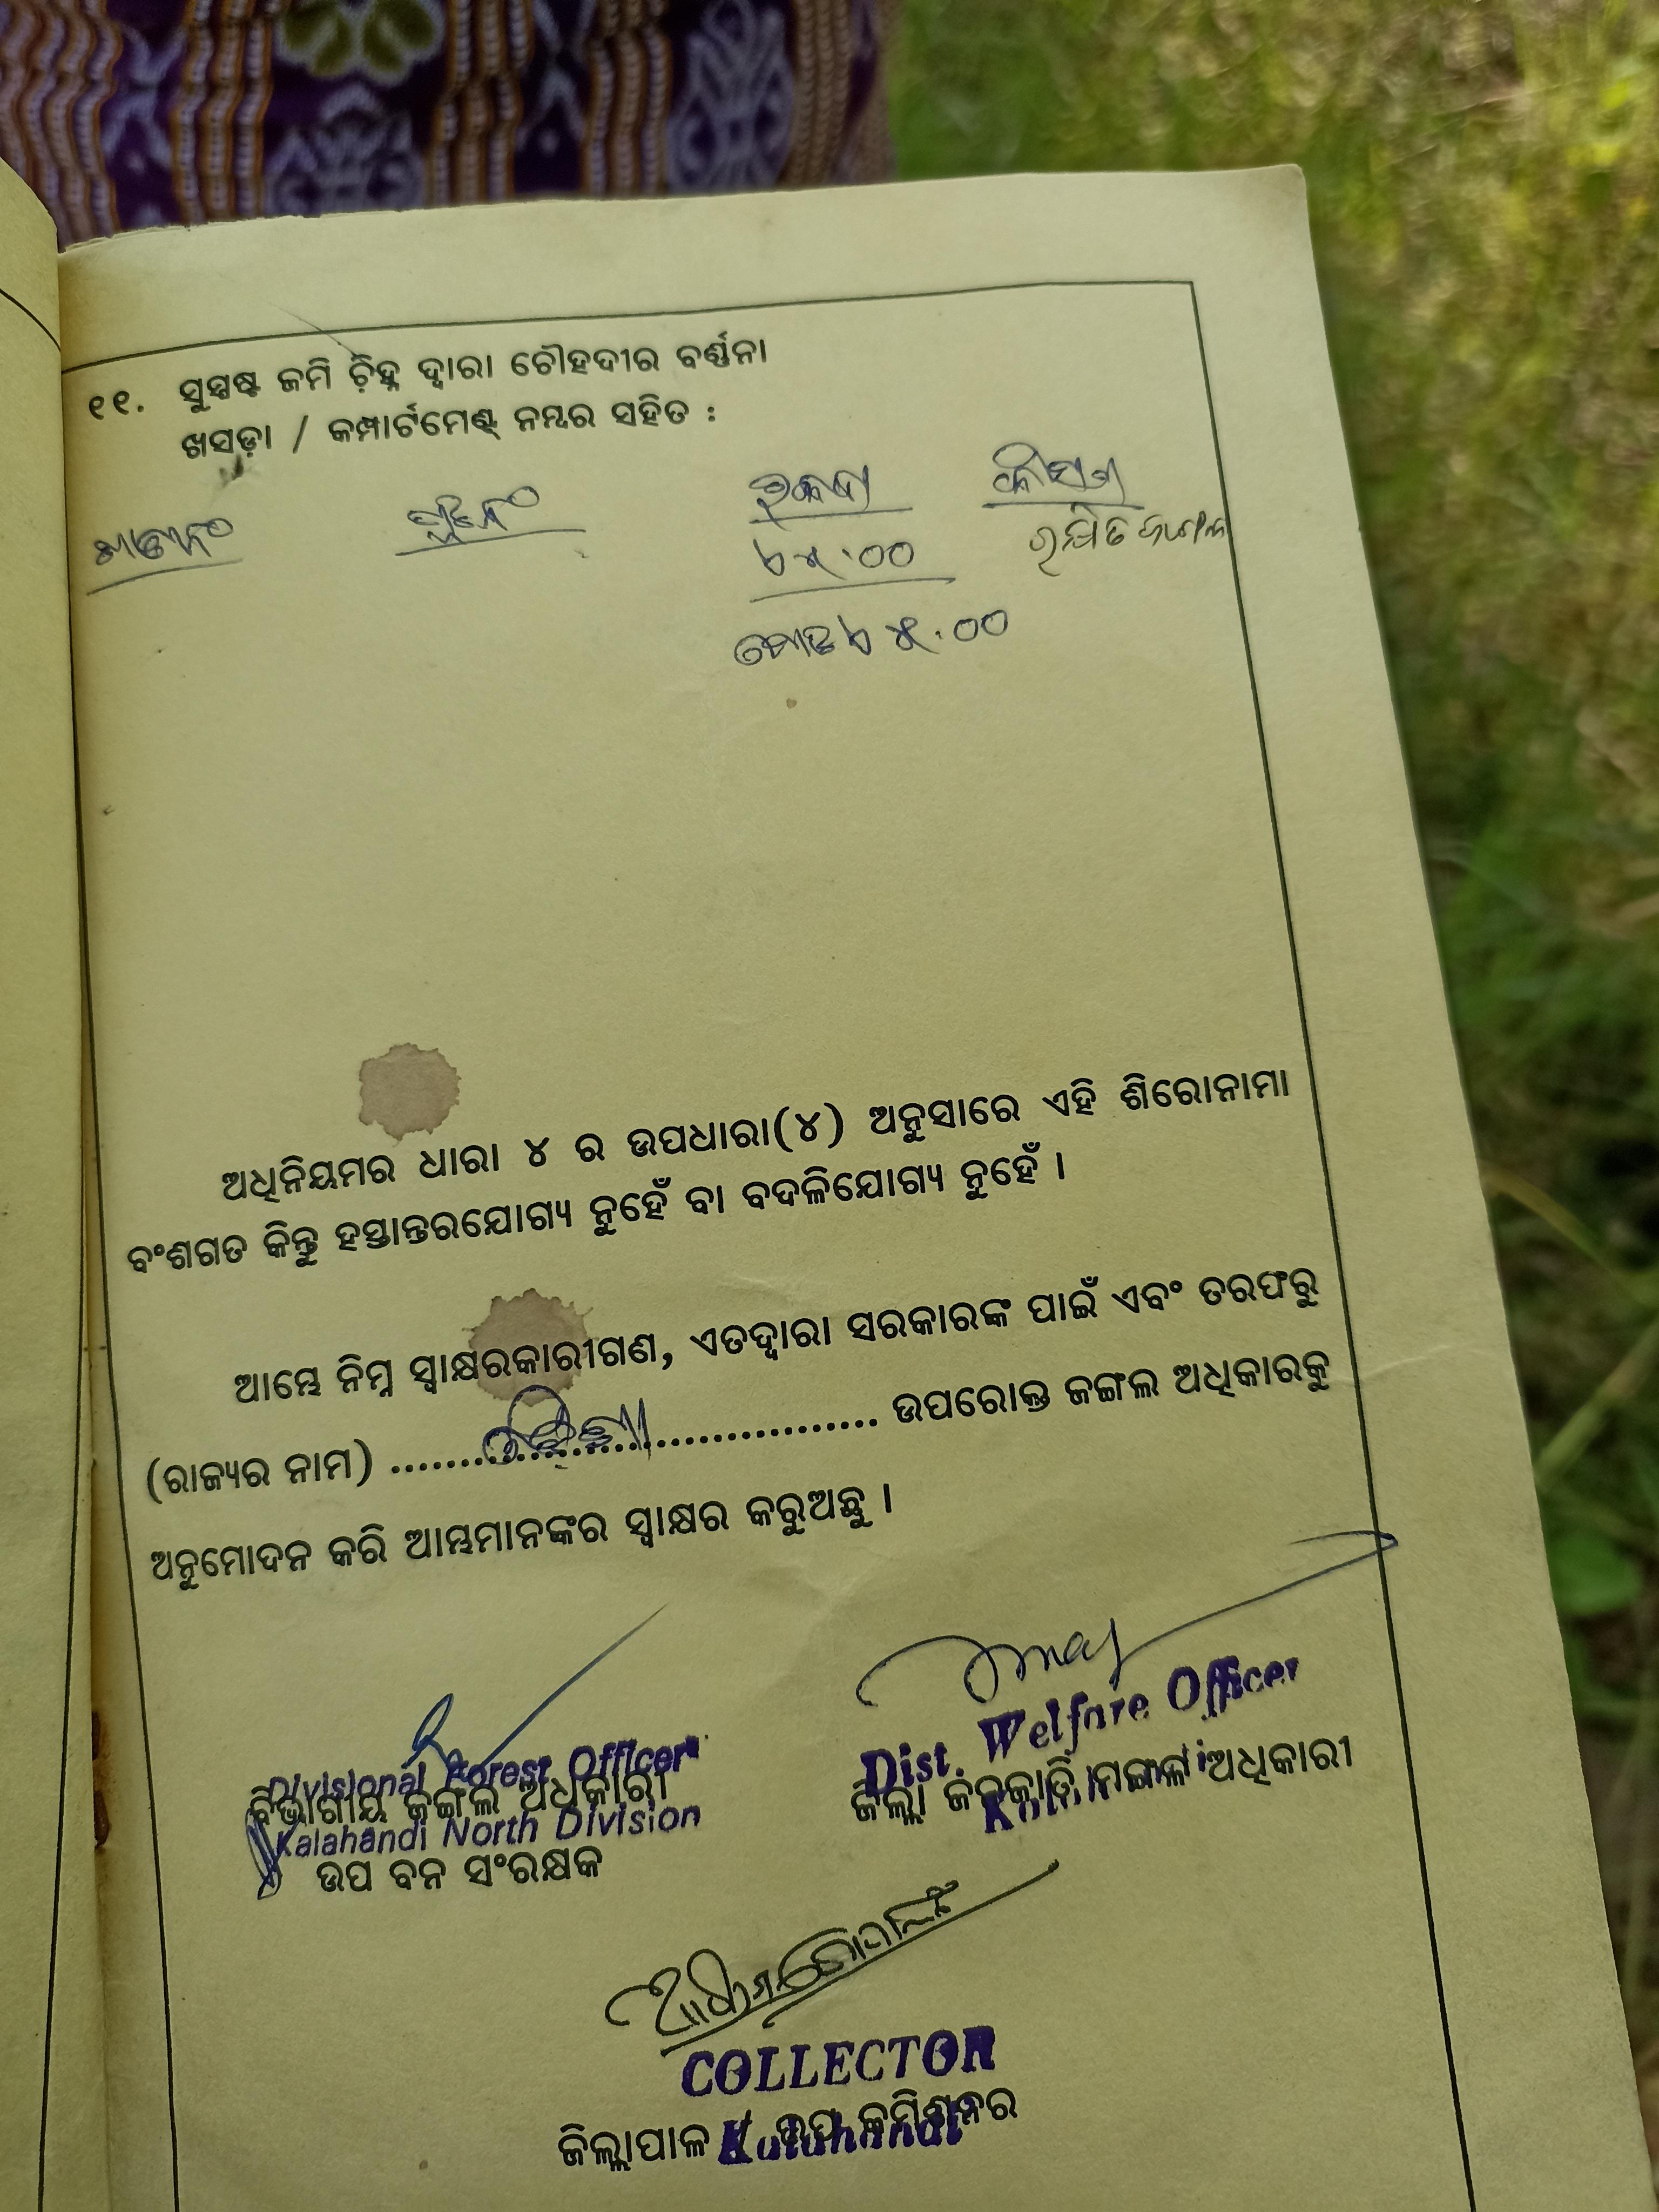 ୧୧. ସୁସ୍ପଷ୍ଟ ଜମି ଚ଼ିହ୍ନ ଦ୍ୱାରା ଚୌହଦୀର ବର୍ଣ୍ଣନା
ଖସଡ଼ା / କମ୍ପାର୍ଟମେଣ୍ଟ୍ ନମ୍ବର ସହିତ :
ଖାତାନଂ ପ୍ଲଟନଂ ରକବା କିସମ
୧୫.୦୦ ରକ୍ଷିତ ଜଙ୍ଗଲ
ମୋଟ ୧୫.୦୦
ଅଧିନିୟମର ଧାରା ୪ ର ଉପଧାରା(୪) ଅନୁସାରେ ଏହି ଶିରୋନାମା
ବଂଶଗତ କିନ୍ତୁ ହସ୍ତାନ୍ତରଯୋଗ୍ୟ ନୁହେଁ ବା ବଦଳିଯୋଗ୍ୟ ନୁହେଁ ।
ଆମ୍ଭେ ନିମ୍ନ ସ୍ୱାକ୍ଷରକାରୀଗଣ, ଏତଦ୍ୱାରା ସରକାରଙ୍କ ପାଇଁ ଏବଂ ତରଫରୁ
(ରାଜ୍ୟର ନାମ) ଓଡ଼ିଶା ଉପରୋକ୍ତ ଜଙ୍ଗଲ ଅଧିକାରକୁ
ଅନୁମୋଦନ କରି ଆମ୍ଭମାନଙ୍କର ସ୍ୱାକ୍ଷର କରୁଅଛୁ ।
Divisional Forest Officer Dist. Welfare Officer
ବିଭାଗୀୟ ଜଙ୍ଗଲ ଅଧିକାରୀ ଜିଲ୍ଲା ଜନଜାତି ମଙ୍ଗଳ ଅଧିକାରୀ
Kalahandi North Division
ଉପ ବନ ସଂରକ୍ଷକ
COLLECTOR
ଜିଲ୍ଲାପାଳ / ଉପ କମିଶନର
Kalahandi